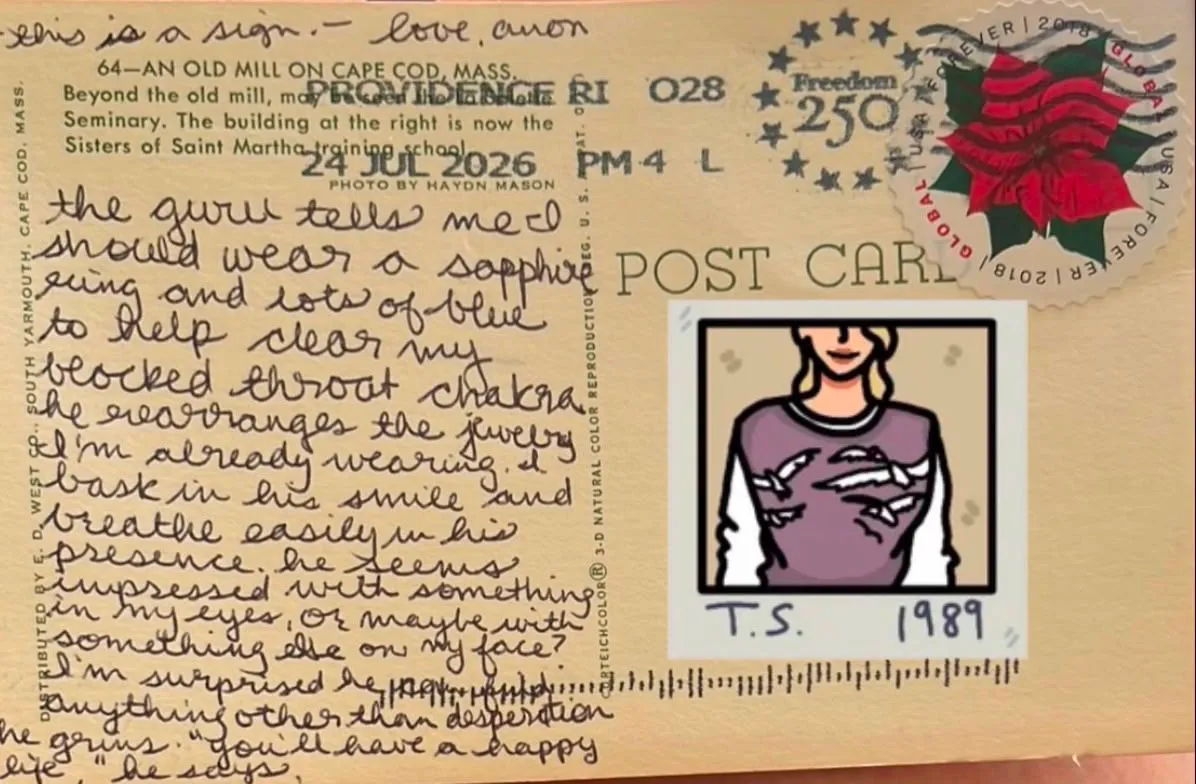 this is a sign. – love, anon
64—AN OLD MILL ON CAPE COD, MASS.
Beyond the old mill, may be seen the La Salette
Seminary. The building at the right is now the
Sisters of Saint Martha training school.
PHOTO BY HAYDN MASON
PROVIDENCE RI 028
24 JUL 2026 PM 4 L
Freedom
250
FOREVER | 2018 | GLOBAL | USA | FOREVER | 2018 | GLOBAL | USA
POST CARD
the guru tells me I
should wear a sapphire
ring and lots of blue
to help clear my
blocked throat chakra
he rearranges the jewelry
I'm already wearing. I
bask in his smile and
breathe easily in his
presence. he seems
impressed with something
in my eyes, or maybe with
something else on my face?
I'm surprised he
anything other than desperation
he grins. "you'll have a happy
life," he says.
DISTRIBUTED BY E. D. WEST CO., SOUTH YARMOUTH, CAPE COD, MASS.
CURTEICHCOLOR® 3-D NATURAL COLOR REPRODUCTION REG. U. S. PAT. O
T.S. 1989